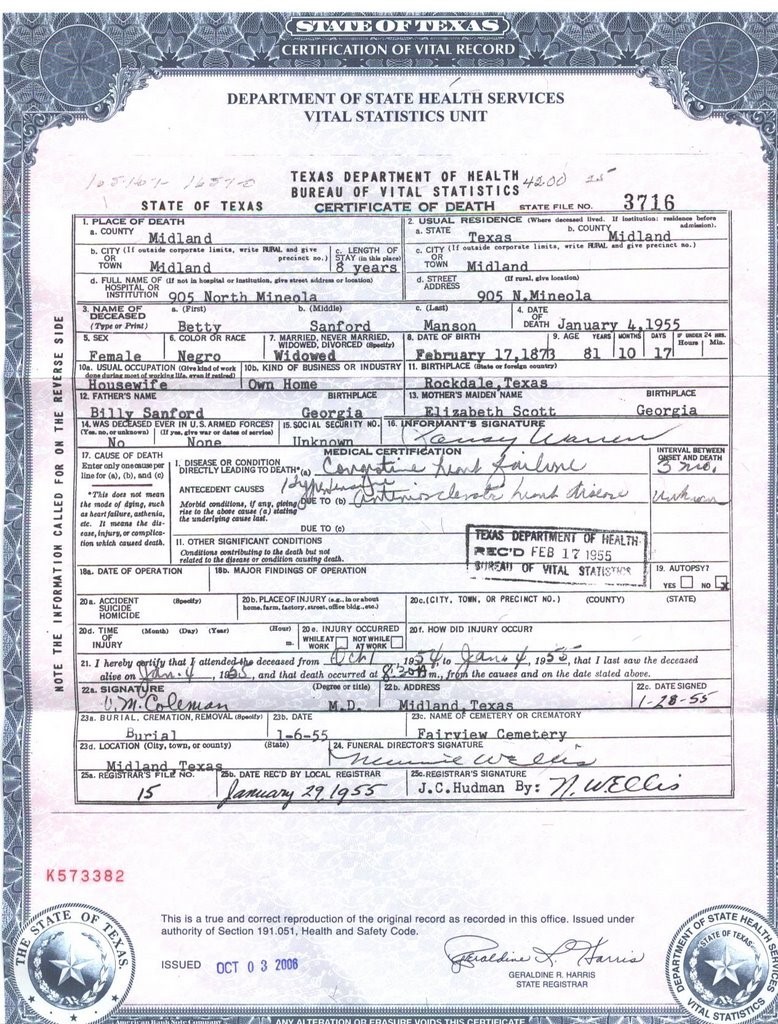 STATE OF TEXAS
CERTIFICATION OF VITAL RECORD
DEPARTMENT OF STATE HEALTH SERVICES
VITAL STATISTICS UNIT
TEXAS DEPARTMENT OF HEALTH 4200
BUREAU OF VITAL STATISTICS
STATE OF TEXAS CERTIFICATE OF DEATH STATE FILE NO. 3716
1. PLACE OF DEATH 2. USUAL RESIDENCE (Where deceased lived. If institution: residence before admission).
a. COUNTY Midland a. STATE Texas b. COUNTY Midland
b. CITY (If outside corporate limits, write RURAL and give precinct no.) OR TOWN Midland c. LENGTH OF STAY (in this place) 8 years c. CITY (If outside corporate limits, write RURAL and give precinct no.) OR TOWN Midland
d. FULL NAME OF (If not in hospital or institution, give street address or location) HOSPITAL OR INSTITUTION 905 North Mineola d. STREET ADDRESS (If rural, give location) 905 N.Mineola
3. NAME OF DECEASED (Type or Print) a. (First) Betty b. (Middle) Sanford c. (Last) Manson 4. DATE OF DEATH January 4,1955
5. SEX Female 6. COLOR OR RACE Negro 7. MARRIED, NEVER MARRIED, WIDOWED, DIVORCED (Specify) Widowed 8. DATE OF BIRTH February 17,1873 9. AGE YEARS 81 MONTHS 10 DAYS 17 IF UNDER 24 HRS. Hours Min.
10a. USUAL OCCUPATION (Give kind of work done during most of working life, even if retired) Housewife 10b. KIND OF BUSINESS OR INDUSTRY Own Home 11. BIRTHPLACE (State or foreign country) Rockdale,Texas
12. FATHER'S NAME Billy Sanford BIRTHPLACE Georgia 13. MOTHER'S MAIDEN NAME Elizabeth Scott BIRTHPLACE Georgia
14. WAS DECEASED EVER IN U.S. ARMED FORCES? (Yes, no, or unknown) No (If yes, give war or dates of service) None 15. SOCIAL SECURITY NO. Unknown 16. INFORMANT'S SIGNATURE
17. CAUSE OF DEATH
Enter only one cause per line for (a), (b), and (c)
*This does not mean the mode of dying, such as heart failure, asthenia, etc. It means the disease, injury, or complication which caused death.
MEDICAL CERTIFICATION
I. DISEASE OR CONDITION DIRECTLY LEADING TO DEATH* (a) Congestive heart failure
INTERVAL BETWEEN ONSET AND DEATH 3 mo.
ANTECEDENT CAUSES
Morbid conditions, if any, giving rise to the above cause (a) stating the underlying cause last.
DUE TO (b) heart disease unknown
DUE TO (c)
II. OTHER SIGNIFICANT CONDITIONS
Conditions contributing to the death but not related to the disease or condition causing death.
TEXAS DEPARTMENT OF HEALTH
REC'D FEB 17 1955
BUREAU OF VITAL STATISTICS
18a. DATE OF OPERATION 18b. MAJOR FINDINGS OF OPERATION 19. AUTOPSY? YES NO X
20a. ACCIDENT SUICIDE HOMICIDE (Specify) 20b. PLACE OF INJURY (e.g., in or about home, farm, factory, street, office bldg., etc.) 20c. (CITY, TOWN, OR PRECINCT NO.) (COUNTY) (STATE)
20d. TIME OF INJURY (Month) (Day) (Year) (Hour) m. 20e. INJURY OCCURRED WHILE AT WORK NOT WHILE AT WORK 20f. HOW DID INJURY OCCUR?
21. I hereby certify that I attended the deceased from Oct 1, 1954, to Jan. 4, 1955, that I last saw the deceased
alive on Jan. 4, 1955, and that death occurred at m., from the causes and on the date stated above.
22a. SIGNATURE (Degree or title) M. Coleman M.D. 22b. ADDRESS Midland,Texas 22c. DATE SIGNED 1-28-55
23a. BURIAL, CREMATION, REMOVAL (Specify) Burial 23b. DATE 1-6-55 23c. NAME OF CEMETERY OR CREMATORY Fairview Cemetery
23d. LOCATION (City, town, or county) (State) Midland,Texas 24. FUNERAL DIRECTOR'S SIGNATURE
25a. REGISTRAR'S FILE NO. 15 25b. DATE REC'D BY LOCAL REGISTRAR January 29, 1955 25c. REGISTRAR'S SIGNATURE J.C.Hudman By: N. W. Ellis
NOTE THE INFORMATION CALLED FOR ON THE REVERSE SIDE
K573382
This is a true and correct reproduction of the original record as recorded in this office. Issued under
authority of Section 191.051, Health and Safety Code.
ISSUED OCT 03 2006
Geraldine R. Harris
GERALDINE R. HARRIS
STATE REGISTRAR
THE STATE OF TEXAS
DEPARTMENT OF STATE HEALTH SERVICES
STATE OF TEXAS
VITAL STATISTICS
American Bank Note Company
ANY ALTERATION OR ERASURE VOIDS THIS CERTIFICATE